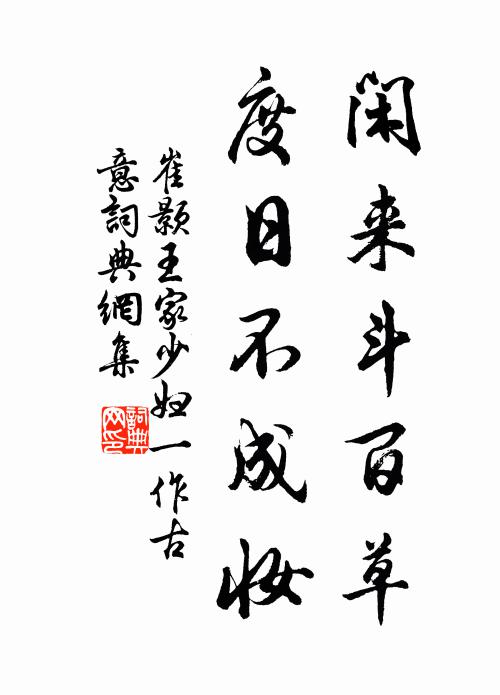 闲来斗百草
度日不成妆
崔颢王家少妇一作古
意詞典網集
詞典
网印